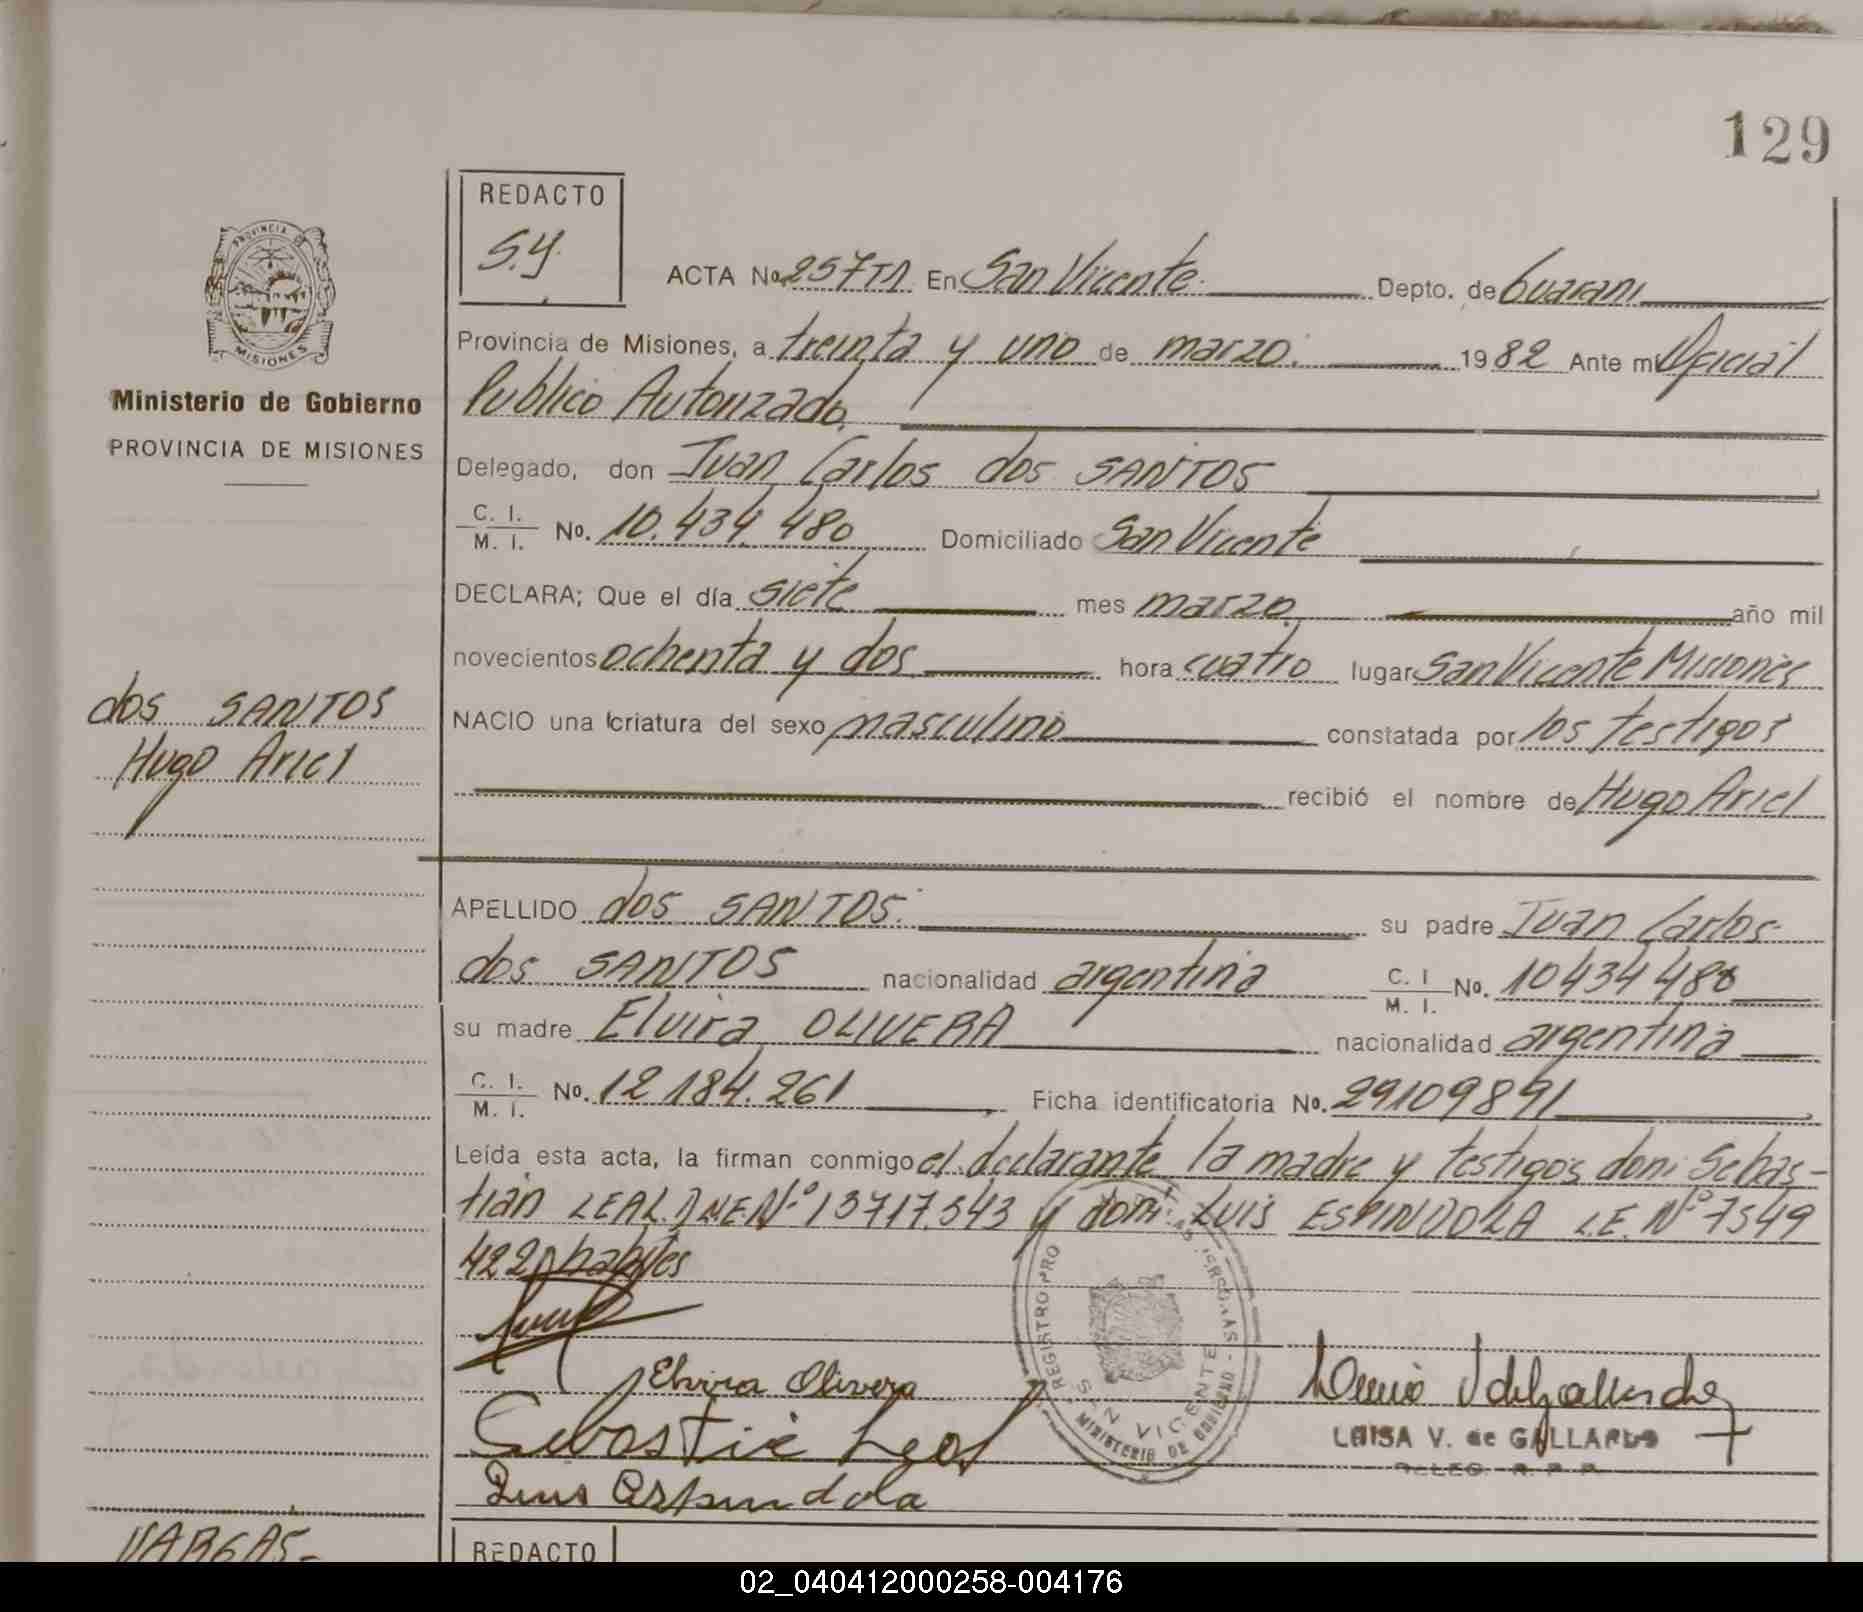 129
REDACTO
S.Y.
PROVINCIA DE
MISIONES
Ministerio de Gobierno
PROVINCIA DE MISIONES
ACTA No. 257 TA En San Vicente. Depto. de Guarani
Provincia de Misiones, a treinta y uno de marzo. 1982 Ante mi Oficial
Publico Autorizado,
Delegado, don Juan Carlos dos SANTOS
C. I. / M. I. No. 10.434.480 Domiciliado San Vicente
DECLARA; Que el día siete mes marzo año mil
novecientos ochenta y dos hora cuatro lugar San Vicente Misiones
dos SANTOS
Hugo Ariel
NACIO una criatura del sexo masculino constatada por los testigos
recibió el nombre de Hugo Ariel
APELLIDO dos SANTOS. su padre Juan Carlos
dos SANTOS nacionalidad argentina C. I / M. I. No. 10434480
su madre Elvira OLIVERA nacionalidad argentina
C. I. / M. I. No. 12.184.261 Ficha identificatoria No. 29109891
Leída esta acta, la firman conmigo el declarante la madre y testigos don: Sebas-
tián LEAL D.N.E. Nº 13717.543 y don: LUIS ESPINDOLA L.E. Nº 7549
422 habiles
Elvira Olivera
Sebastia Leal
Luis Espindola
REGISTRO PRO PERSONAS
SAN VICENTE
MINISTERIO DE GOBIERNO
LUISA V. de GALLARDO
DELEG. R. P. P.
VARGAS-
REDACTO
02_040412000258-004176